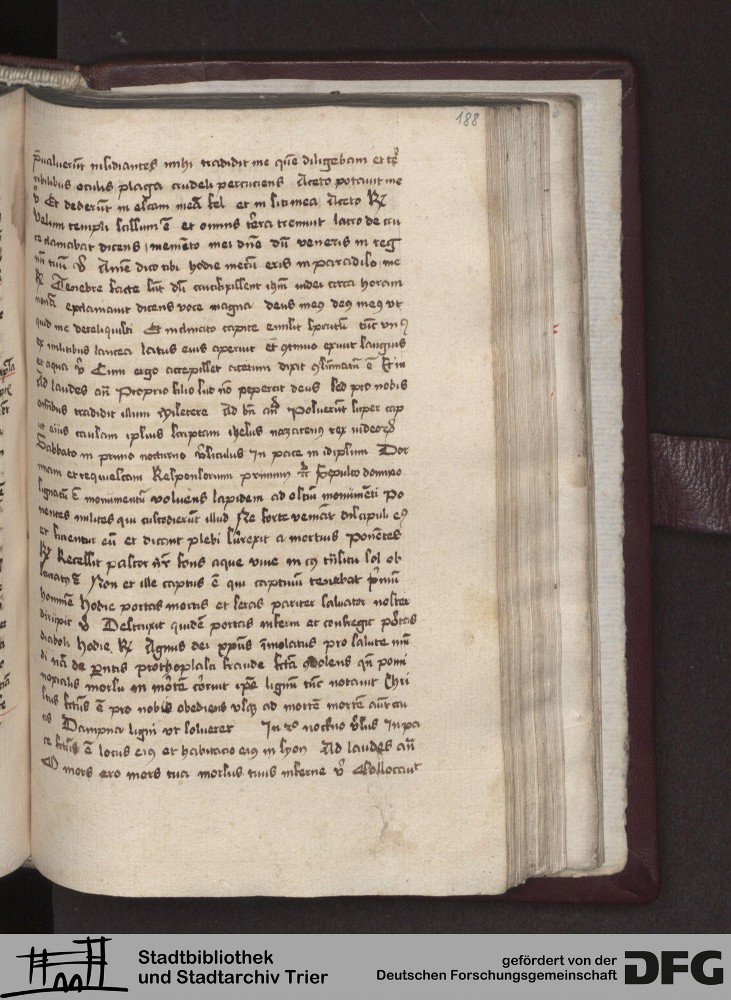 188
p̄ualuerūt insidiantes mihi tradidit me quē diligebam et tr̄
ribilibus oculis plaga crudeli percuciens Aceto potauit me
v̄ Et dederūt in escam meā fel et in siti mea Aceto R̄
Velum templi scissum ē et omnis t̄ra tremuit latro de cru
ce clamabat dicens memēto mei dn̄e dū veneris in reg
nū tuū v̄ Amē dico tibi hodie mecū eris in paradiso me
R̄ Tenebre facte sūt dū crucifixissent ihm̄ iudei circa horam
nonā exclamauit dicens voce magna deus meus deus meus vt
quid me dereliquisti Et inclinato capite emisit sp̄ritū tūc vnus
ex militibus lancea latus eius aperuit et continuo exiuit sanguis
et aqua v̄ Cum ergo accepisset acetum dixit ē
Ad laudes añ Proprio filio suo nō pepercit deus sed pro nobis
omībus tradidit illum Ad bn̄ añ Posuerūt super cap
ut eius causam ipsius scriptam ihesus nazarenus rex iudeorum
Sabbato in primo nocturno v̄siculus In pace in idipsum Dor
mam et requiescam Responsorium primum Sepulto domino
signatū ē monumentū voluens lapidem ad ostiū monumēti Po
nentes milites qui custodierūt illud Ne forte veniāt discipuli eius
et furentur eū et dicant plebi surrexit a mortuis Ponētes
R̄ Recessit pastor nr̄ fons aque viue in cuius trāsitu sol ob
scuratus ē Nam et ille captus ē qui captiuū tenebat primū
hominē Hodie portas mortis et seras pariter saluator noster
dirupit v̄ Destruxit quidē portas inferni et confregit portas
diaboli Hodie R̄ Agnus dei xp̄us īmolatus pro salute mū
di nā de parentis prothoplasti fraude fcā condolens qn̄ pomi
noxialis morsu in mortē corruit ip̄e lignū tūc notauit Chri
stus fctūs ē pro nobis obediens vsque ad mortē mortē autē cru
cis Dampna ligni vt solueret In nocturno v̄sus In pa
ce fctūs ē locus eius et habitacio eius in syon Ad laudes añ
O mors ero mors tua morsus tuus inferne v̄ Collocauit
Stadtbibliothek
und Stadtarchiv Trier
gefördert von der
Deutschen Forschungsgemeinschaft
DFG